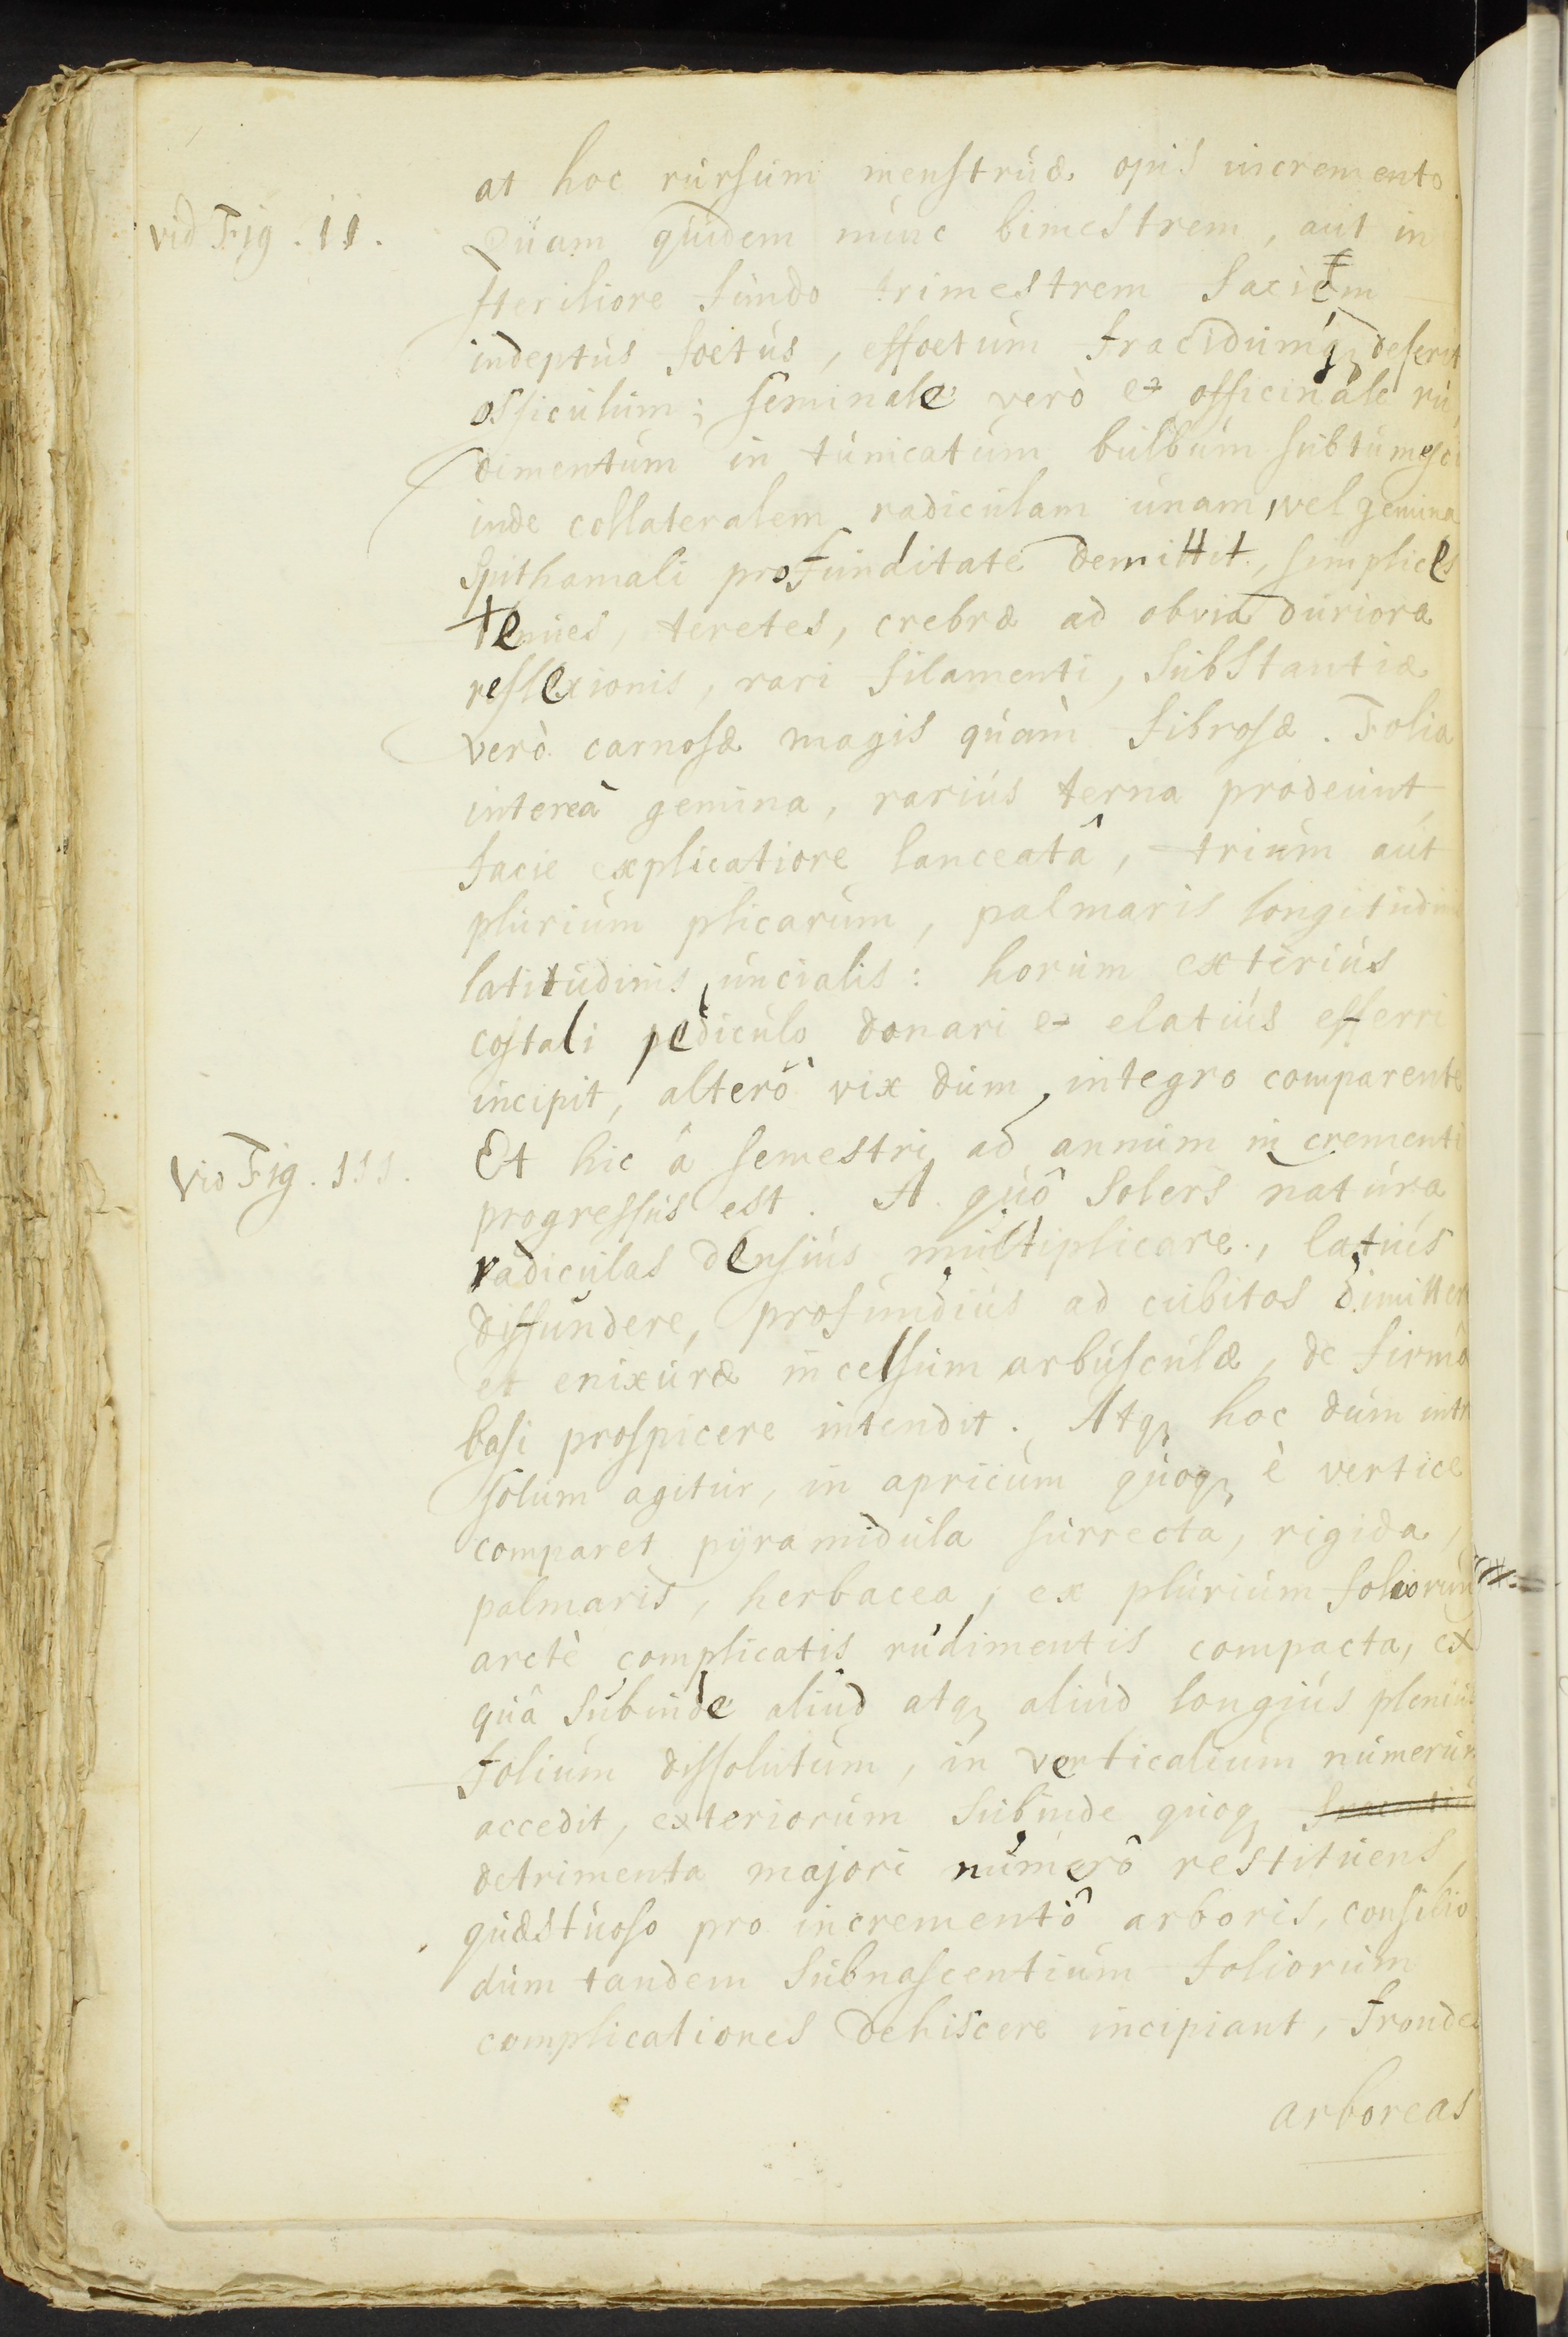 at hoc rursum menstruæ opus incremento.
vid Fig. II.
Quam quidem nunc bimestrem, aut in
steriliore fundo trimestrem faciem
indeptus foetus, effoetum fracidumq deserit
ossiculum; seminale verò & officinale ru,
dimentum in tunicatum bulbum subtumesc
inde collateralem radiculam unam, vel gemina
spithamali profunditate demittit, simplices
tenues, teretes, crebræ ad obvia duriora
reflexionis, rari filamenti, substantiæ
verò carnosæ magis quàm fibrosæ. Folia
intereà gemina, rariùs terna prodeunt,
facie explicatiore lanceatâ, trium aut
plurium plicarum, palmaris longitudini
latitudinis uncialis: horum exterius
costali pediculo donari & elatiùs efferri
incipit, alterô vix dum integro comparente
Vid Fig. III.
Et hic â semestri ad annum incrementi
progressus est. A quô solers natura
radiculas densiùs multiplicare, latiùs
diffundere, profundiùs ad cubitos dimitter
et enixuræ in celsum arbusculæ, de firmâ
basi prospicere intendit. Atq hoc dum intr
solum agitur, in apricum quoq è vertice
comparet pyramidula surrecta, rigida,
palmaris, herbacea, ex plurium foliorum
arctè complicatis rudimentis compacta, ex
quâ subinde aliud atq aliud longiùs pleniùs
folium dissolutum, in verticalium numerum
accedit, exteriorum subinde quoq
detrimenta majori numerô restituens,
quæstuoso pro incrementô arboris, consilio
dum tandem subnascentium foliorum
complicationes dehiscere incipiant, fronde
arboreas